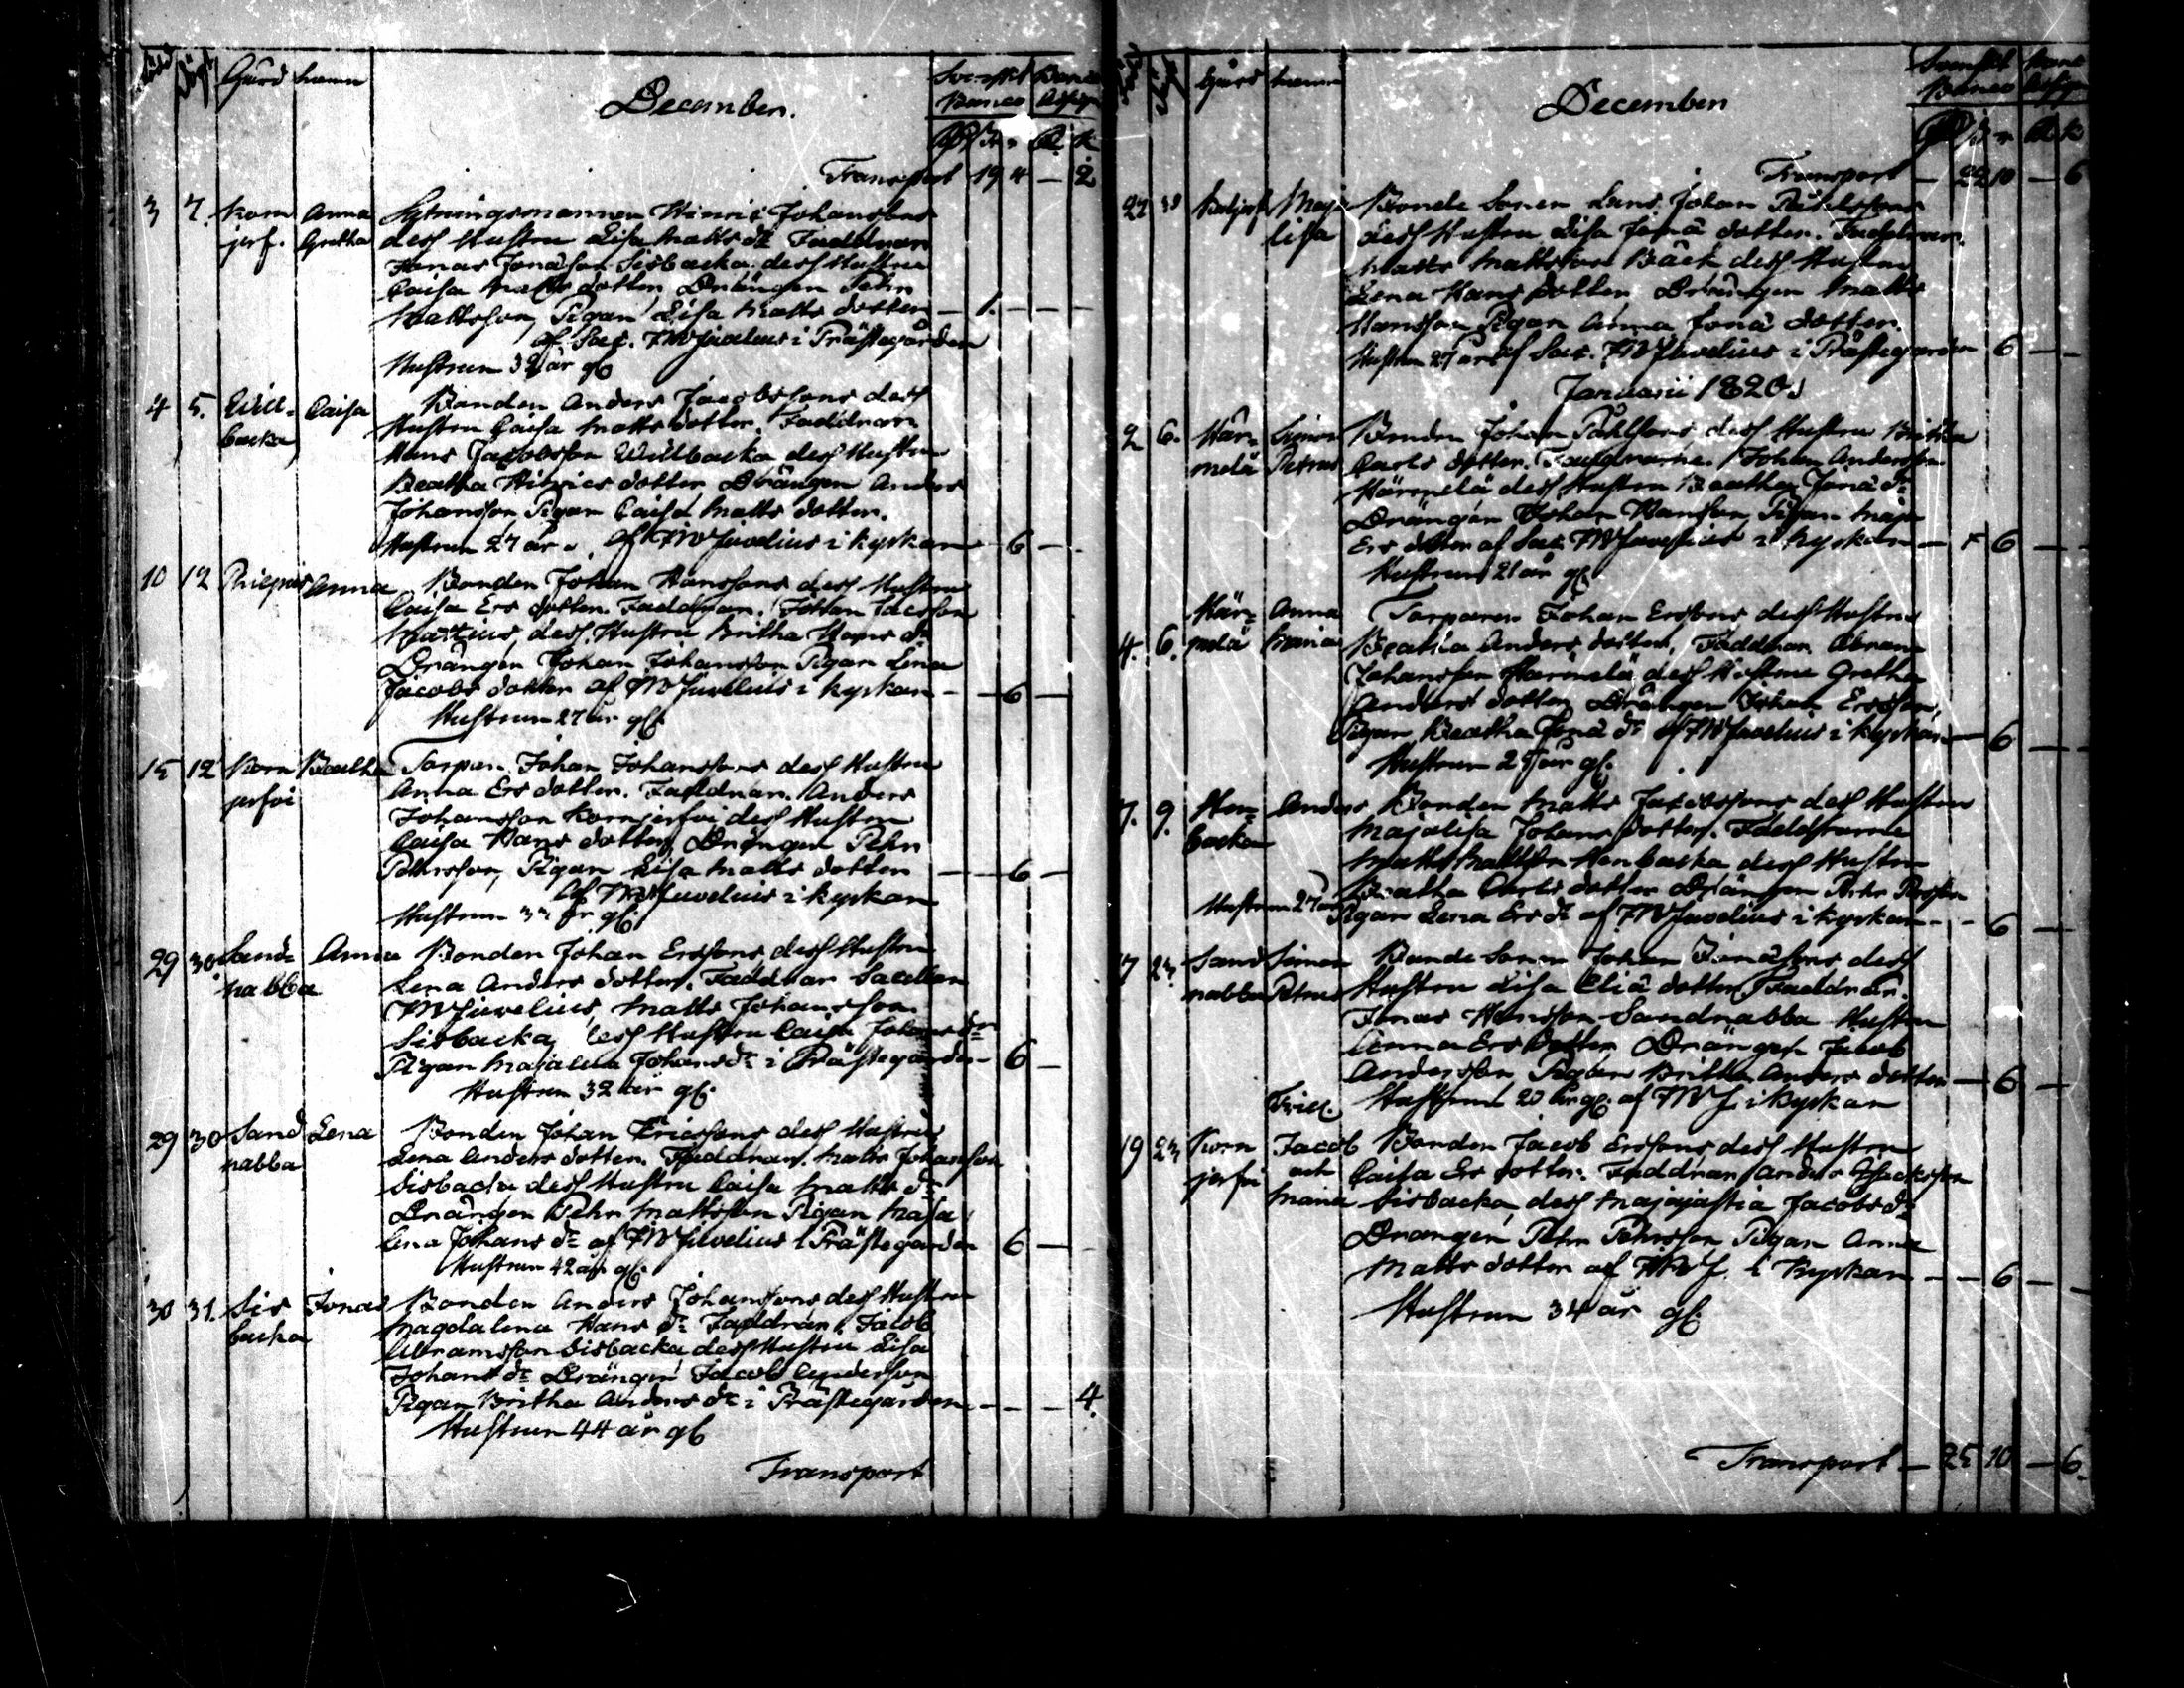 Gård namn
December.
Svenskt Banco
Banco Assign
Transport 19 4 — 2
3 7. Korn Anna Hyringsmannen Hinric Johansons
jerf. Gretha dess Hustru Lisa Matts dr Faddrar
Jonas Jonasson Sisbacka dess Hustru
Caisa Matts dotter Drängen Pehr
Mattsson, Pigan Lisa Matts dotter — 1. — —
af Sac. FW Juvelius i Prästegården
Hustrun 32 år gl
4 5. Will- Caisa Bonden Anders Jacobssons dess
backa Hustru Caisa Matts dotter. Faddrar
Hans Jacobsson Willbacka dess Hustru
Beatha Hinrics dotter Drängen Anders
Johansson Pigan Caisa Matts dotter.
Hustrun 27 år. af FW Juvelius i kyrkan — 6 —
10 12 Anna Bonden Johan Hanssons dess Hustru
Caisa Ers dotter. Faddrar. Johan Jacsson
Martius, dess Hustru Britha Hans dr
Drängen Johan Johansson Pigan Lena
Jacobs dotter af FW Juvelius i kyrkan — 6 —
Hustrun 27 år gl.
15 12 Korn Beatha Torpar. Johan Johanssons dess Hustru
jerfvi Anna Ers dotter. Faddrar. Anders
Johansson Kornjerfvi dess Hustru
Caisa Hans dotter Drängen Pehr
Pehrsson, Pigan Lisa Matts dotter — 6 —
af FW Juvelius i kyrkan
Hustrun år gl.
29 30 Sand- Anna Bonden Johan Erssons dess Hustru
nabba Lena Anders dotter. Faddrar Sacellan
FW Juvelius, Matts Johansson
Sisbacka, dess Hustru Caisa Johans dr
Pigan Majalena Johans dr i Prästegården — 6 —
Hustrun 32 år gl.
29 30 Sand Lena Bonden Johan Ericssons dess Hustru
nabba Lena Anders dotter. Faddrar. Matts Johansson
Sisbacka dess Hustru Caisa Matts dr
Drängen Pehr Mattsson Pigan Maja
lena Johans dr af FW Juvelius i Prästegården 6 —
Hustrun 42 år gl.
30 31. Sis Jonas Bonden Anders Johanssons dess Hustru
backa Magdalena Hans dr Faddrar. Jacob
Abramsson Sisbacka dess Hustru Lisa
Johans dr Drängen Jacob Andersson
Pigan Britha Anders dr i Prästegården — — — 4.
Hustrun 44 år gl
Transport
Gård namn
December
Svenskt Banco
Banco Assign
Transport — 22 10 — 6
27 Maja Bonde Sonen Johan Påhlssons
lisa dess Hustru Lisa Jonä dotter. Faddrar.
Matts Mattsson Bäck dess Hustru
Lena Hans dotter Drängen Matts
Hansson Pigan Anna Jonä dotter.
Hustrun 27 år af Sac. FW Juvelius i Prästegården 6 — —
Januarii 1820.
2 6. Här- Simon Bonden Johan Påhlssons dess Hustru Britha
mälä Petrus Carls dotter. Faddrarne. Johan Andersson
Härmälä dess Hustru Beatha Jonä dr
Drängen Johan Hansson, Pigan Maja
Ers dotter af Sac. FW Juvelius i kyrkan — 6 — —
Hustrun 21 år gl.
Här- Anna Torparen Johan Erssons dess Hustru
4. 6. mälä Maria Beatha Anders dotter. Faddrar Abram
Johansson Härmälä dess Hustru Gretha
Anders dotter Drängen Johan Ersson,
Pigan Beatha Jonä dr af FW Juvelius i kyrkan — 6 — —
Hustrun år gl.
7. 9. Hen- Anders Bonden Matts Jacobssons dess Hustru
backa Majalisa Johans dotter. Faddrarne
Matts Mattsson Henbacka dess Hustru
Beatha Carls dotter Drängen Pehr Persson
Hustrun 27 år Pigan Lena Ers dr af FW Juvelius i kyrkan — 6 —
17 23. Sand Simon Bonde Sonen Johan Jonassons dess
nabba Petrus Hustru Lisa Eliä dotter Faddrar.
Jonas Hansson Sandnabba Hustru
Anna Ers dotter Drängen Jacob
Andersson Pigan Britha Anders dotter — 6 —
Hustrun 20 år gl. af FWJ i kyrkan
Trill.
19 23 Korn Jacob Bonden Jacob Erssons dess Hustru
jerfvi och Caisa Ers dotter. Faddrar Anders
Maria Sisbacka, dess Jacobs dr
Drängen Pehr Pehrsson Pigan Anna
Matts dotter af FWJ. i kyrkan — — 6 —
Hustrun 34 år gl.
Transport — 25 10 — 6.